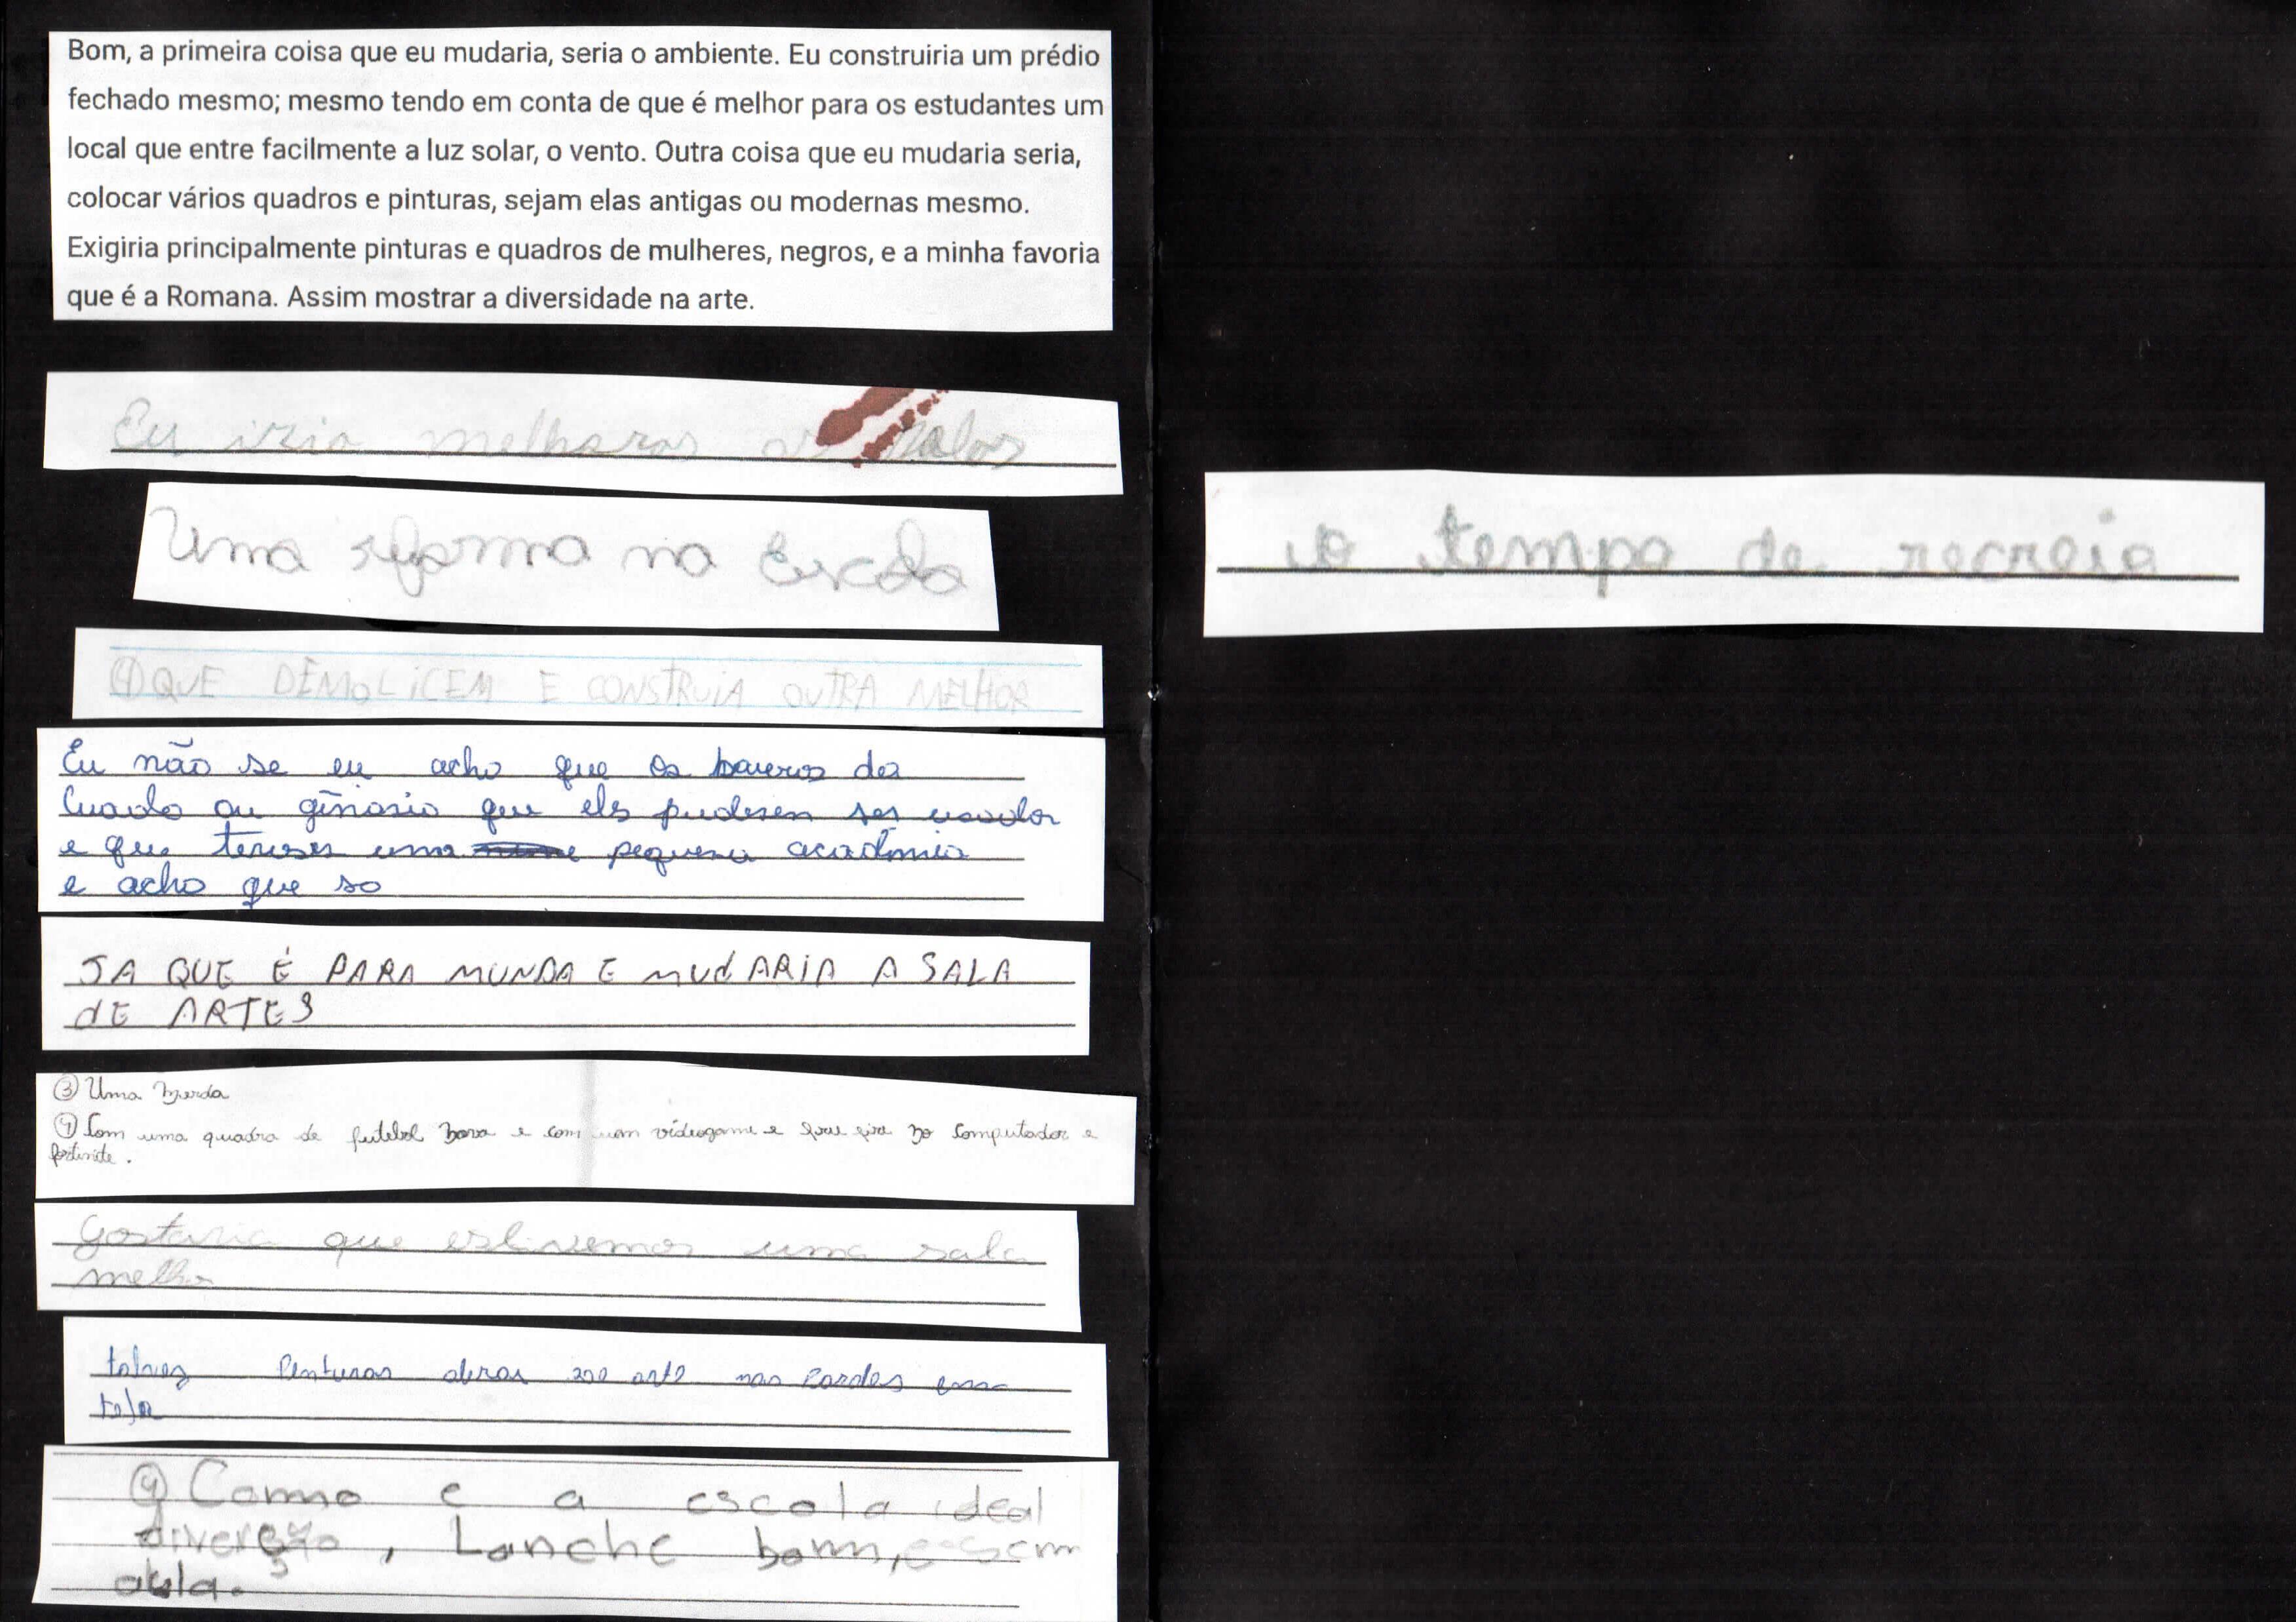 Bom, a primeira coisa que eu mudaria, seria o ambiente. Eu construiria um prédio
fechado mesmo; mesmo tendo em conta de que é melhor para os estudantes um
local que entre facilmente a luz solar, o vento. Outra coisa que eu mudaria seria,
colocar vários quadros e pinturas, sejam elas antigas ou modernas mesmo.
Exigiria principalmente pinturas e quadros de mulheres, negros, e a minha favoria
que é a Romana. Assim mostrar a diversidade na arte.
Eu iria melharas as salas
Uma reforma na Escola
④ QUE DEMOLICEM E CONSTRUIA OUTRA MELHOR
Eu não se eu acho que os
ou ginasio que els pudesen ser usador
e que uma pequena
e acho que so
JA QUE É PARA MUNDA E MUdARIA A SALA
dE ARTES
③ Uma merda
④ Com uma quadra de futebol nova e com um videogame e no computador e
fortinite.
Gostaria que estivemos uma sala
melho
talvez Pinturas arte nas
tela
④ Como e a escola ideal
diverção, Lanche bom, e sem
aula.
o tempo de recreio